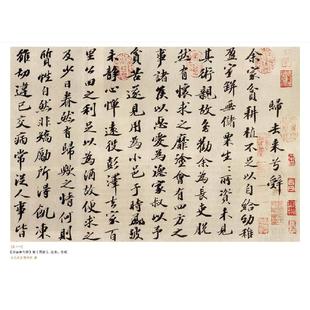 歸去來兮辭
余家貧耕植不足以自給幼稚
盈室缾無儲粟生生所資未見
其術親故多勸余為長吏脫
然有懷求之靡途會有四方之
事諸侯以惠愛為德家叔以于
貧苦遂見用為小邑于時風波
未靜心憚遠役彭澤去家百
里公田之利足以為酒故便求之
及少日眷然有歸歟之情何則
質性自然非矯勵所得飢凍
雖切違己交病常從人事皆